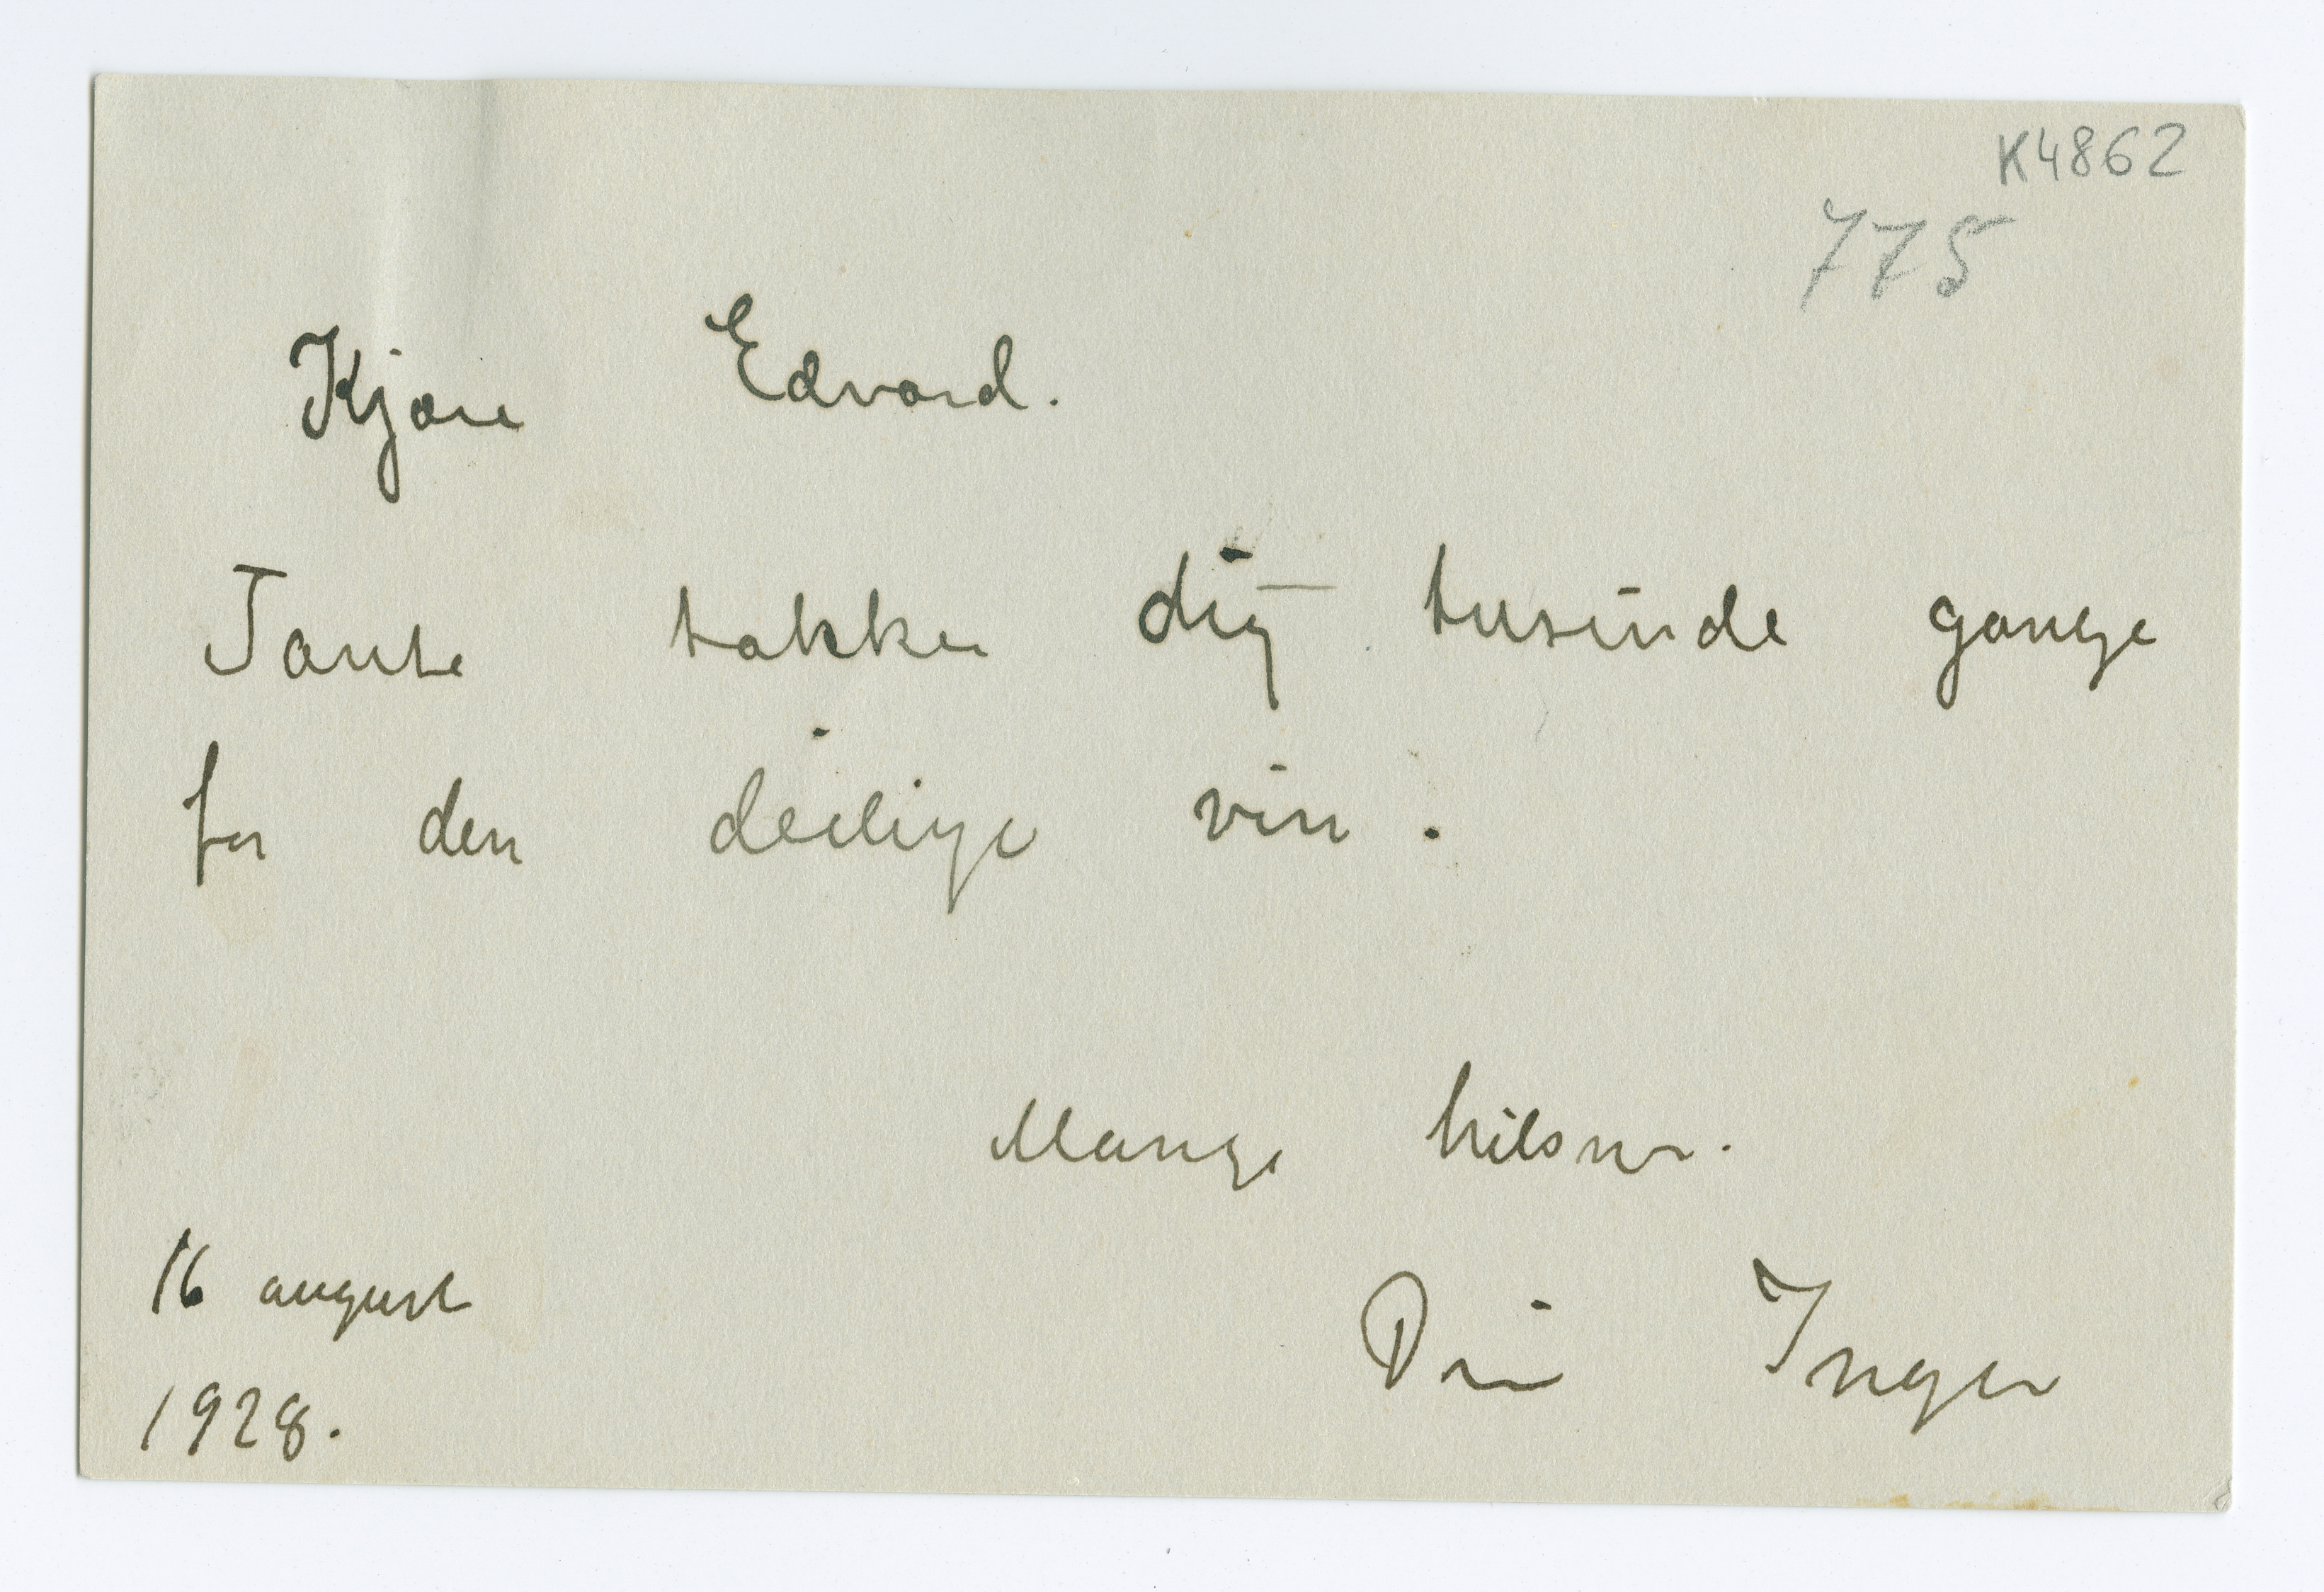 K4862
775
Kjære Edvard.
Tante takker dig tusinde gange
for den deilige vin.
Mange hilsner.
Din Inger
16 august
1928.